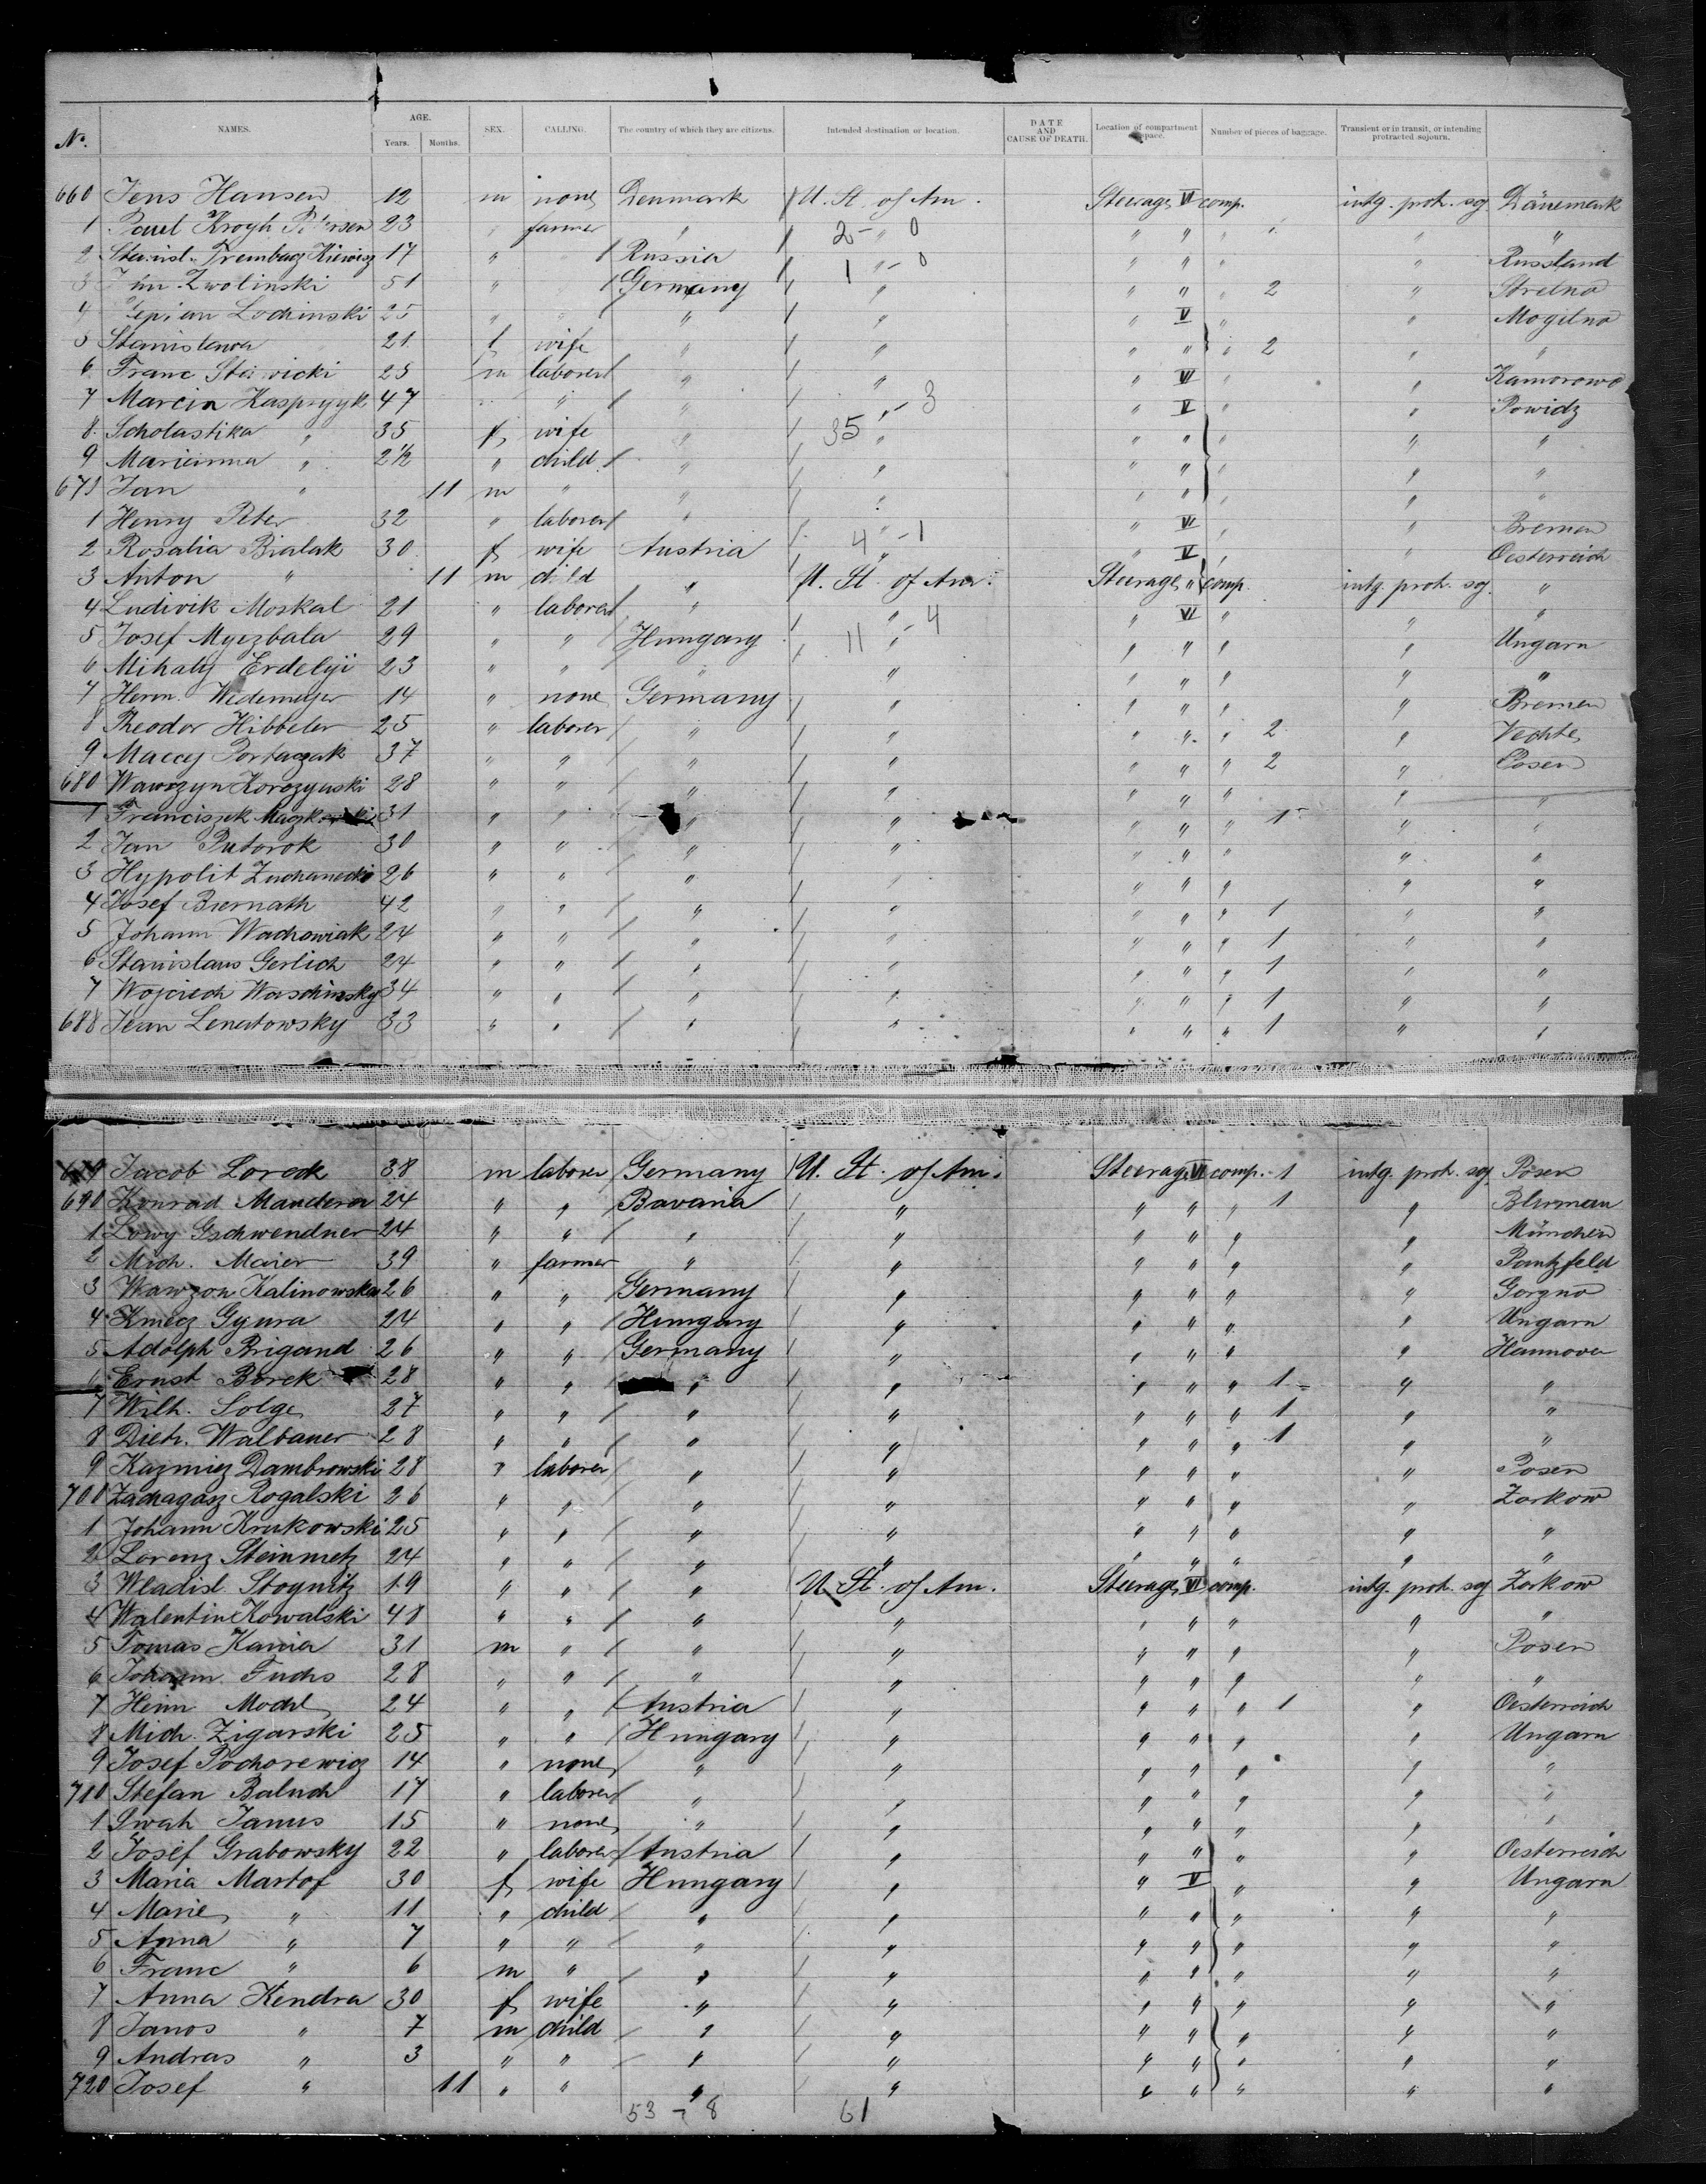 No. NAMES. AGE. Years. Months. SEX. CALLING. The country of which they are citizens. Intended destination or location. DATE AND CAUSE OF DEATH. Location of compartment space. Number of pieces of baggage. Transient or in transit, or intending protracted sojourn.
660 Jens Hansen 12 m none Denmark U. St. of Am. Steerage VI comp. intg. protr. soj. Dänemark
1 Paul Krogh Petersen 23 farmer " 2 - " 0 " " " " "
2 17 " Russia 1 " - 0 " " " " Russland
3 Zwolinski 51 " Germany " " " " 2 " Strelno
4 Lochinski 25 " " " " " V " " Mogilno
5 Stanislawa 21 f wife " " " " " 2 " "
6 Franc 25 m laborer " " " VI " " Kamorowo
7 Marcin Kasprzyk 47 " " " " - 3 " V " " Powidz
8 Scholastika " 35 f wife " 35 " " " " " "
9 Marianna " 2 1/2 " child " " " " " " "
Jan " 11 m " " " " " " " "
1 Henry Peter 32 " laborer " " " VI " " Bremen
2 Rosalia Bialak 30 f wife Austria 4 " - 1 " V " " Oesterreich
3 Anton " 11 m child " U. St. of Am. Steerage " comp. intg. protr. soj. "
4 Ludwik Moskal 21 " laborer " " " VI " " "
5 Josef Myczbala 29 " " Hungary 11 " - 4 " " " " Ungarn
6 Mihaly Erdelyi 23 " " " " " " " " "
7 Herm. Widemeyer 14 " none Germany " " " " " Bremen
8 Theodor Hibbeler 25 " laborer " " " " " 2 " Vechte
9 Maccy Portaczak 37 " " " " " " " 2 " Posen
680 Wawrzyn Korozynski 28 " " " " " " " " "
1 Franciszek 31 " " " " " " " 1 " "
2 Jan Putorok 30 " " " " " " " " "
3 Hypolit 26 " " " " " " " " "
4 Josef Biernath 42 " " " " " " " 1 " "
5 Johann Wachowiak 24 " " " " " " " 1 " "
6 Stanislaus Gerlich 24 " " " " " " " 1 " "
7 Wojciech Waschinsky 34 " " " " " " " 1 " "
688 Jean Lenatowsky 33 " " " " " " " 1 " "
689 Jacob Loreck 38 m laborer Germany U. St. of Am. Steerage VI comp. 1 intg. protr. soj. Posen
690 Konrad Mandera 24 " " Bavaria " " " " 1 "
1 Lowy Gschwendner 24 " " " " " " " " München
2 Mich. Maier 39 " farmer " " " " " " Pantzfeld
3 Wawzon Kalinowska 26 " " Germany " " " " " Gorzno
4 Kmecz Gyura 24 " " Hungary " " " " " Ungarn
5 Adolph Brigand 26 " " Germany " " " " " Hannover
6 Ernst Borek 28 " " " " " " " 1 " "
7 Wilh. Solge 27 " " " " " " " 1 " "
8 Dietr. Walbauer 28 " " " " " " " 1 " "
9 Kazmiez Dambrowski 28 " laborer " " " " " " Posen
700 Zachagasz Rogalski 26 " " " " " " " " Zerkow
1 Johann Krukowski 25 " " " " " " " " "
2 Lorenz Steinmetz 24 " " " " " " " " "
3 Wladisl. Stognitz 19 " " " U. St. of Am. Steerage VI comp. intg. protr. soj. Zerkow
4 Walentin Kowalski 48 " " " " " " " " "
5 Tomas Kania 31 m " " " " " " " Posen
6 Johann Fuchs 28 " " " " " " " " "
7 Heinr Modl 24 " " Austria " " " " 1 " Oesterreich
8 Mich. Zigarski 25 " " Hungary " " " " " Ungarn
9 Josef Pochorewicz 14 " none " " " " " " "
710 Stefan Baluch 17 " laborer " " " " " " "
1 Iwah Janus 15 " none " " " " " " "
2 Josef Grabowsky 22 " laborer Austria " " " " " Oesterreich
3 Maria Martof 30 f wife Hungary " " V " " Ungarn
4 Marie " 11 " child " " " " " " "
5 Anna " 7 " " " " " " " " "
6 Franc " 6 m " " " " " " " "
7 Anna Kendra 30 f wife " " " " " " "
8 Janos " 7 m child " " " " " " "
9 Andras " 3 " " " " " " " " "
720 Josef " 11 " " " " " " " " "
53 - 8 61